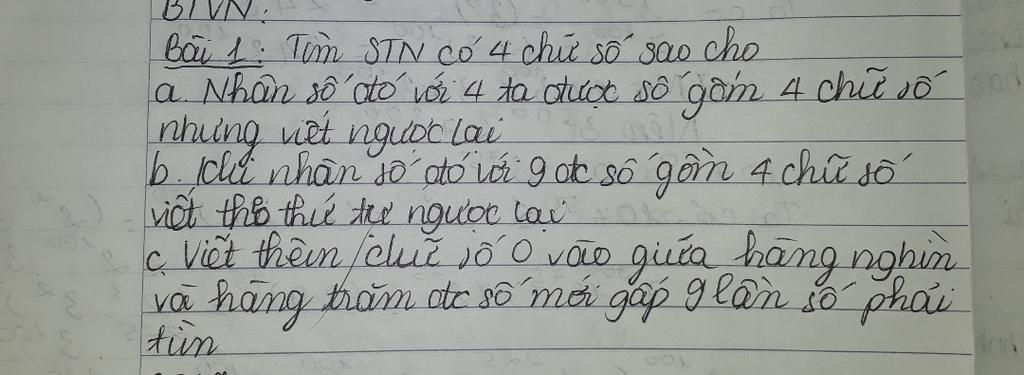 BTVN:
Bài 1: Tìm STN có 4 chữ số sao cho
a. Nhân số đó với 4 ta được số gồm 4 chữ số
nhưng viết ngược lại
b. Khi nhân số đó với 9 đc số gồm 4 chữ số
viết theo thứ tự ngược lại
c. Viết thêm 1 chữ số 0 vào giữa hàng nghìn
và hàng trăm đc số mới gấp 9 lần số phải
tìm